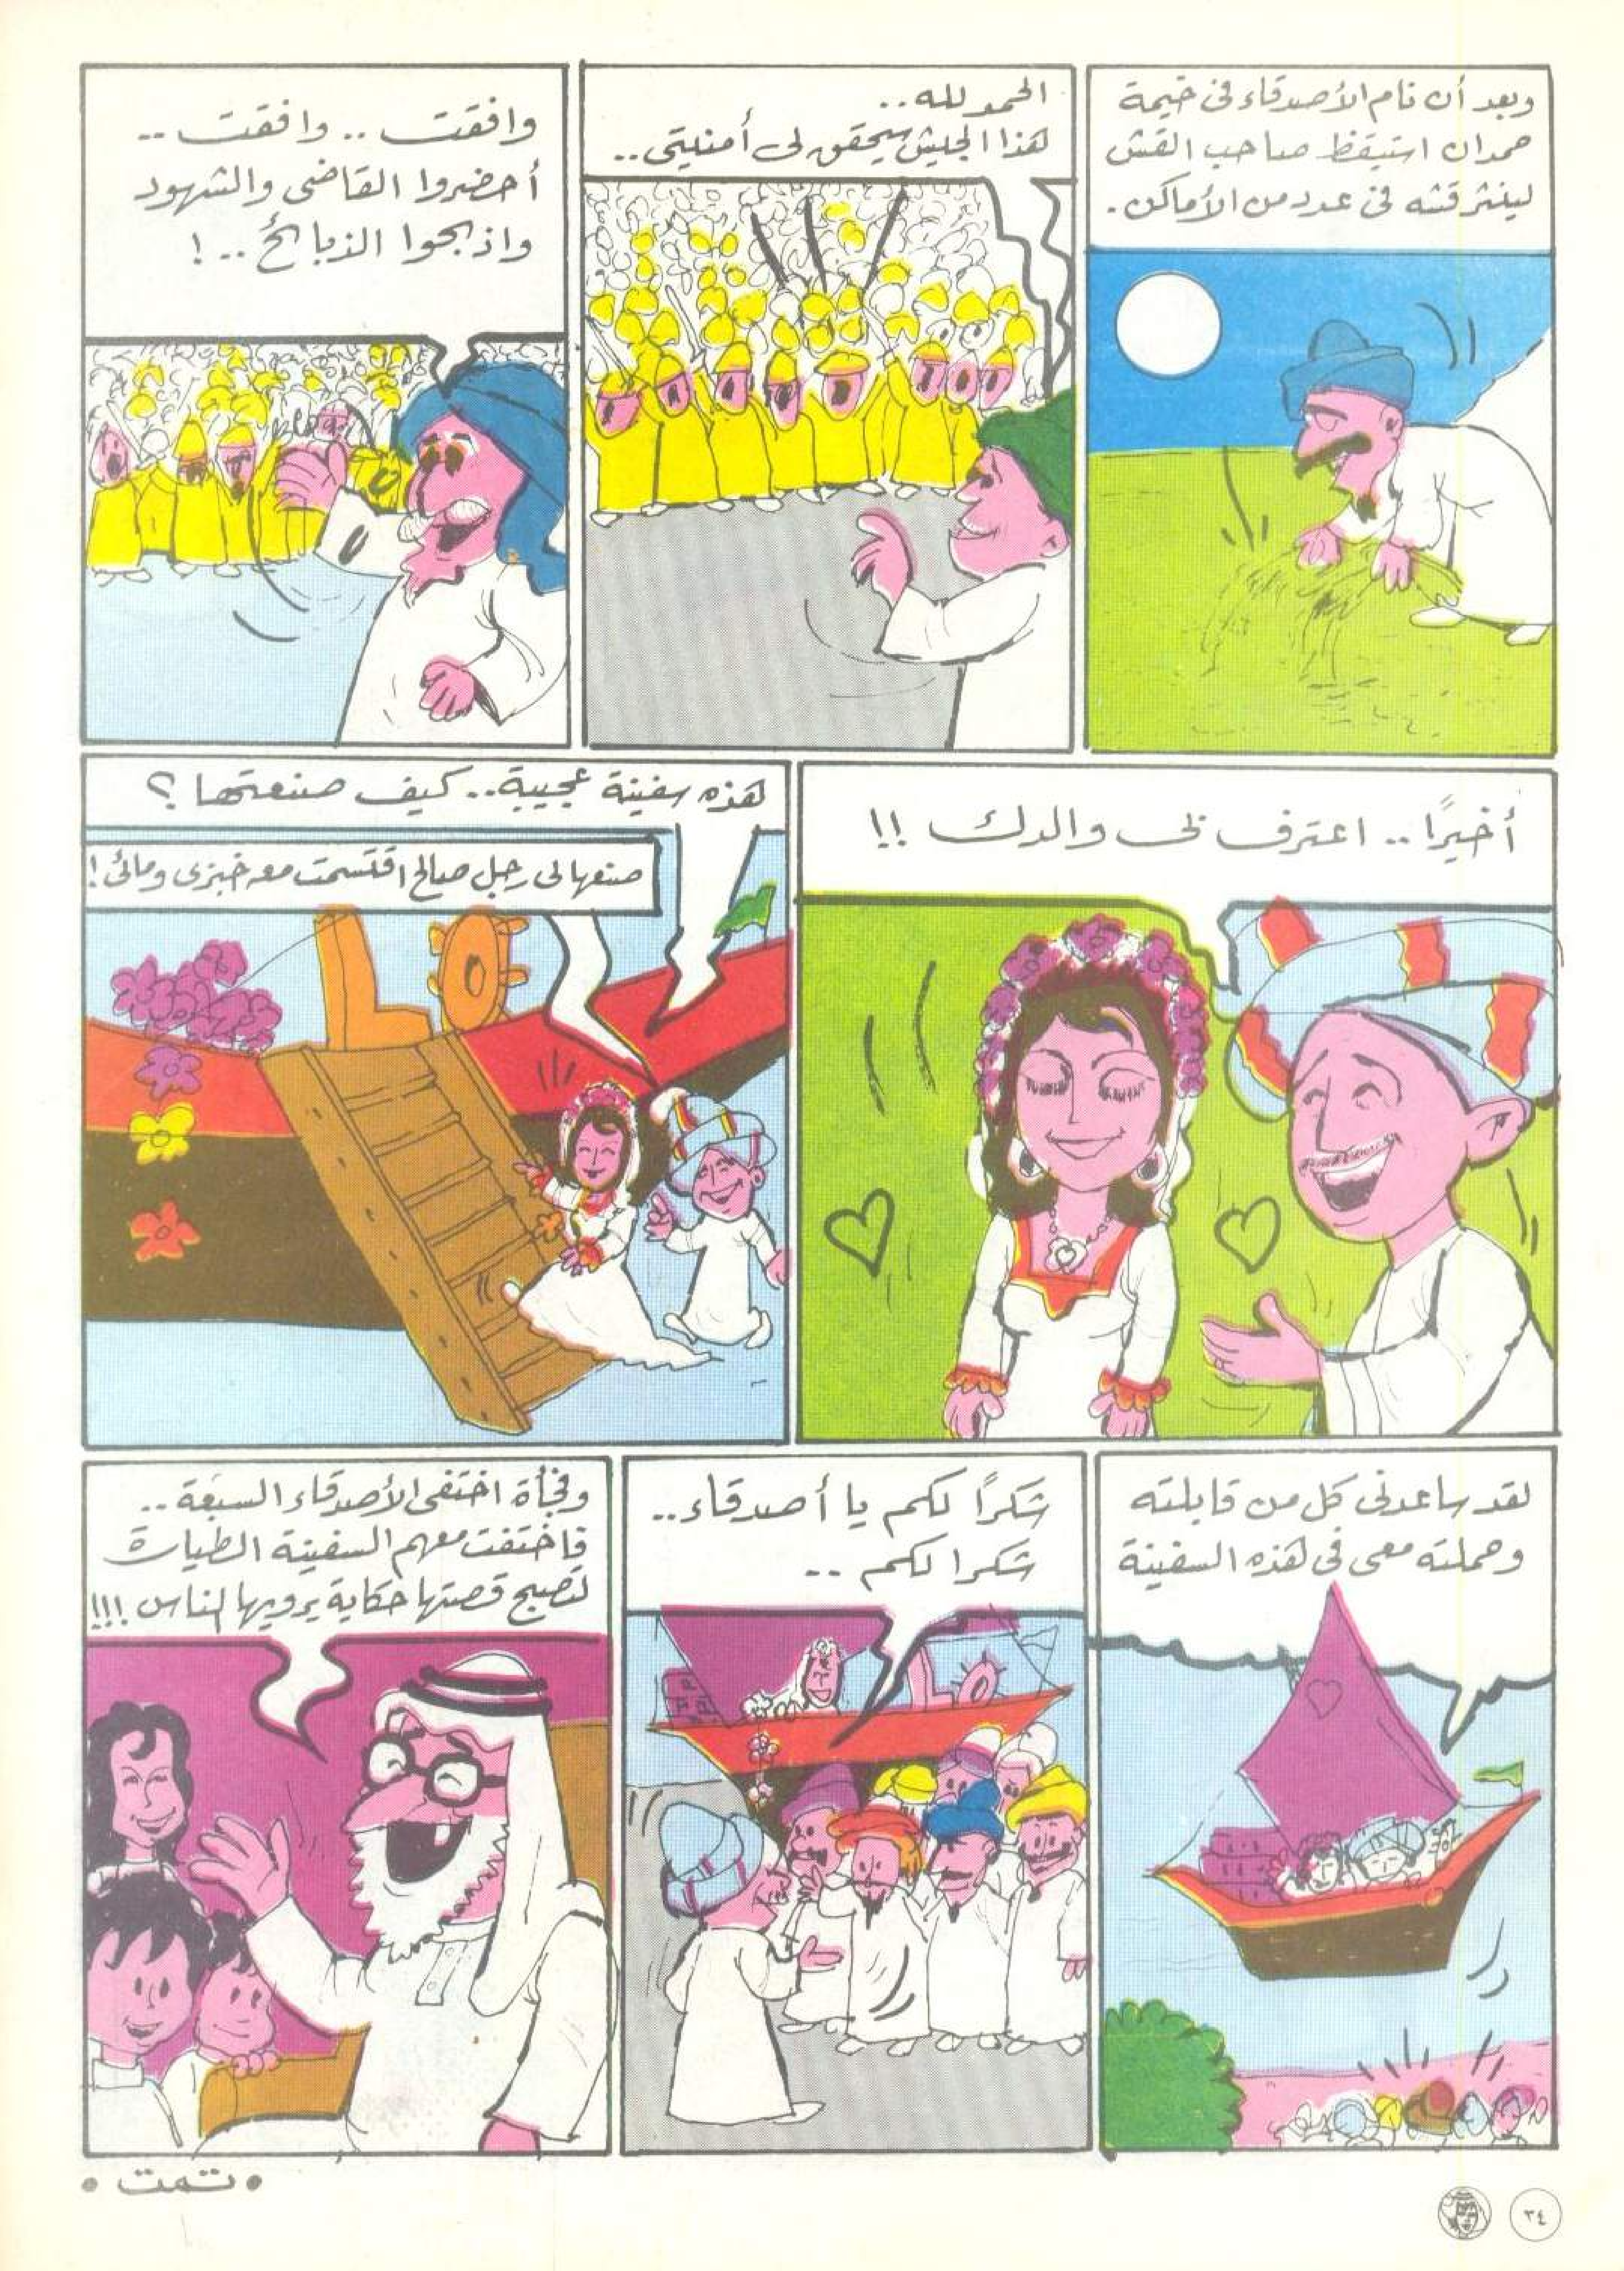 وبعد أن نام الأصدقاء فى خيمة
حمدان استيقظ صاحب القش
لينثر قشه فى عدد من الأماكن.
الحمد لله..
هذا الجيش سيحقق لى أمنيتى..
وافقت .. وافقت ..
أحضروا القاضى والشهود
واذبحوا الذبائح .. !
أخيرًا .. اعترف لى والدك !!
هذه سفينة عجيبة.. كيف صنعتها ؟
صنعها لى رجل صالح اقتسمت معه خبزى ومائى !
لقد ساعدنى كل من قابلته
وحملته معى فى هذه السفينة
شكرًا لكم يا أصدقاء..
شكرا لكم ..
وفجأة اختفى الأصدقاء السبعة ..
فاختفت معهم السفينة الطيارة
لتصبح قصتها حكاية يرويها الناس !!!
• تمت •
٣٤